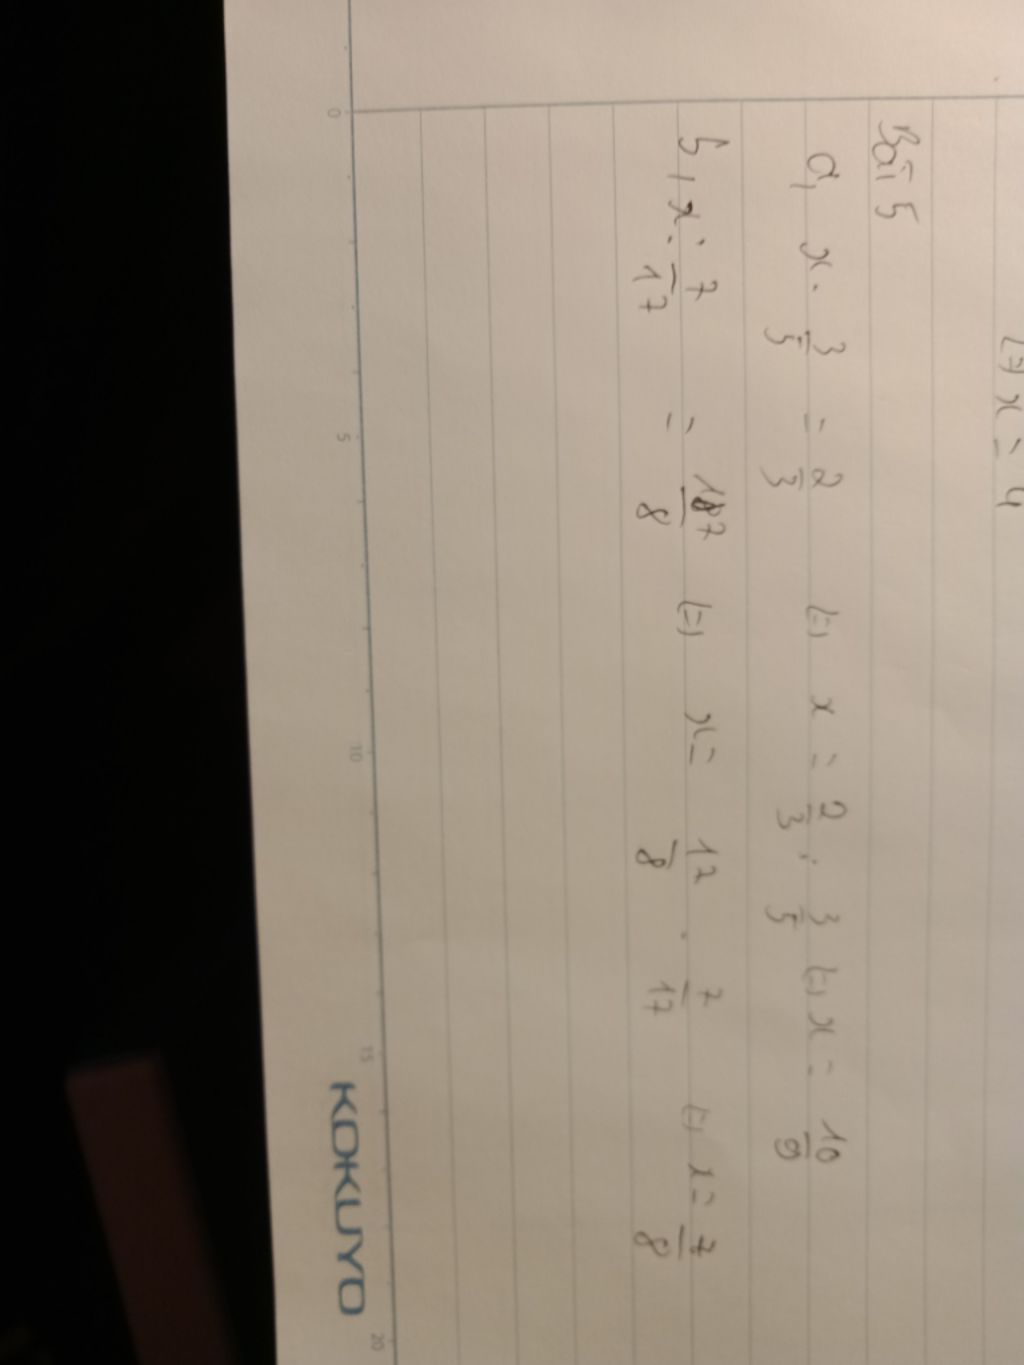 (=) x = 4
Bài 5
a, x . 3/5 = 2/3 (=) x = 2/3 : 3/5 (=) x = 10/9
b, x : 7/17 = 17/8 (=) x = 17/8 . 7/17 (=) x = 7/8
0 5 10 15 20
KOKUYO